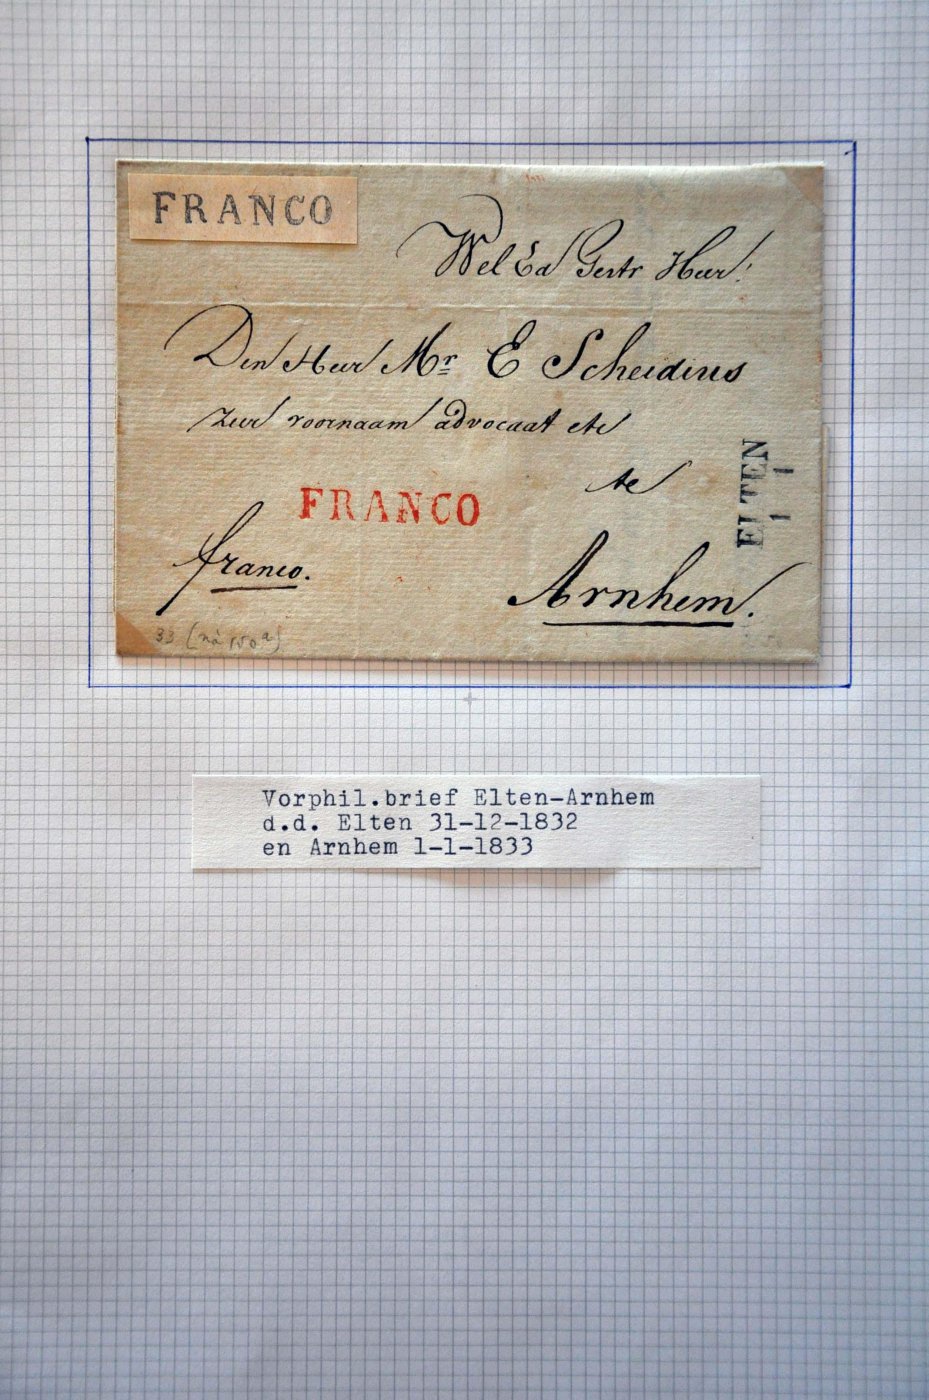 FRANCO
Wel Ed Gestr Heer!
Den Heer Mr. E Scheidius
zeer voornaam advocaat etc
te
ELTEN
1 1
FRANCO
franco.
Arnhem.
33
Vorphil.brief Elten-Arnhem
d.d. Elten 31-12-1832
en Arnhem 1-1-1833